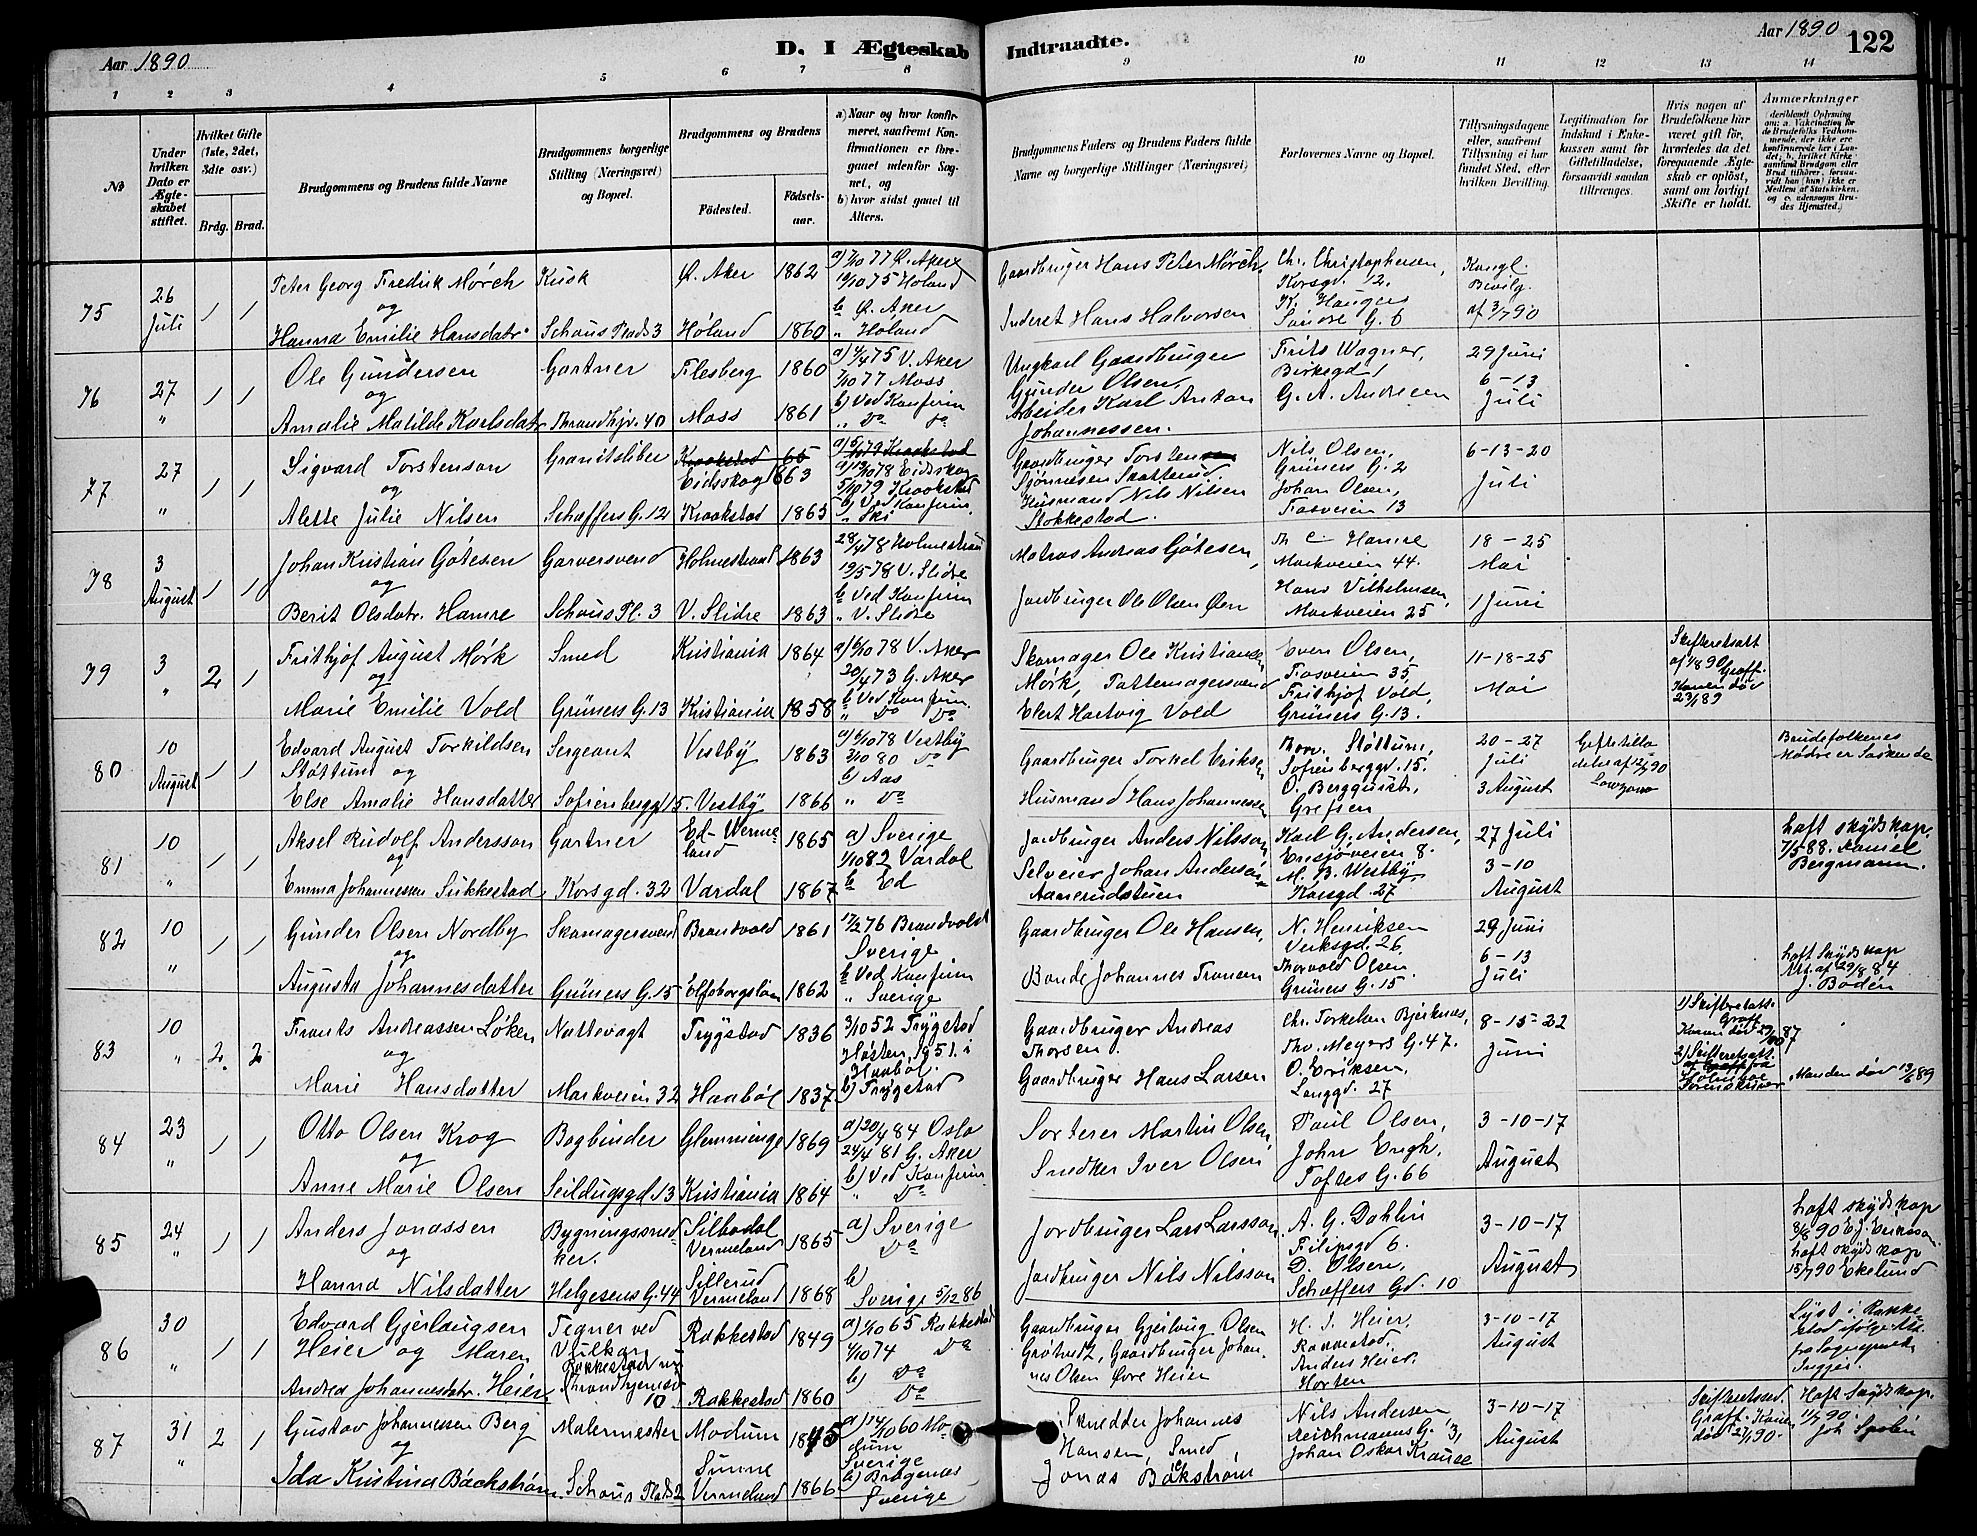 Aar 1890
D. I Ægteskab
Indtraadte.
Aar 1890
122
1 2 3 4 5 6 7 8 9 10 11 12 13 14
No
Under hvilken Dato er Ægteskabet stiftet.
Hvilket Gifte (1ste, 2det, 3die osv.)
Brdg. Brud.
Brudgommens og Brudens fulde Navne
Brudgommens borgerlige Stilling (Næringsvei) og Bopæl.
Brudgommens og Brudens
Födested.
Födsels-aar.
a) Naar og hvor konfirmeret, saafremt Konfirmationen er foregaaet udenfor Sognet, og
b) hvor sidst gaaet til Alters.
Brudgommens Faders og Brudens Faders fulde Navne og borgerlige Stillinger (Næringsvei)
Forlovernes Navne og Bopæl.
Tillysningsdagene eller, saafremt Tillysning ei har fundet Sted, efter hvilken Bevilling.
Legitimation for Indskud i Enkekassen samt for Giftetilladelse, forsaavidt saadan tiltrænges.
Hvis nogen af Brudefolkene har været gift för, hvorledes da det foregaaende Ægteskab er oplöst, samt om lovligt Skifte er holdt.
Anmærkninger
(deriblandt Oplysning om: a. Vakcination for de Brudefolks Vedkommende, der ikke ere konfirmerede her i Landet; b. hvilket Kirkesamfund Brudgom eller Brud tilhörer, forsaavidt han (hun) ikke er Medlem af Statskirken, og c. udensogns Brudes Hjemsted.)
75
26 Juli
1 1
Peter Georg Fredrik Mörch
og
Hanna Emilie Hansdatr.
Kusk
Schous Plads 3
Ø. Aker 1862
Høland 1860
a) 7/10 77 Ø. Aker
10/10 75 Høland
b Ø. Aker
" Høland
Gaardbruger Hans Peter Mörch
Inderst Hans Halvorsen
Chr. Christophersen,
Korsgd. 12.
K. Haugers
Søndre G. 6
Kongl.
Bevilg.
af 3/7 90
76
27 "
1 1
Ole Gundersen
og
Amalie Matilde Karlsdatr
Gartner
Throndhjv. 40
Flesberg 1860
Moss 1861
a) 4/4 75 V. Aker
7/10 77 Moss
b) Ved Konfirm
" Do Do
Ungkarl Gaardbruger
Gunder Olsen,
Arbeider Karl Anton
Johannessen.
Frits Wagner,
Birksgd 1
G. A. Andreen
29 Juni
6-13
Juli
77
27 "
1 1
Sigvard Torstenson
og
Alette Julie Nilsen
Granitsliber
Schæffers G. 12
Kraakstad 65
Eidsskog 1863
Kraakstad 1863
a) 5/10 79 Kraakstad
a) 13/10 78 Eidskog
5/10 79 Kraakstad
b) Ved Konfirm.
" Ski
Gaardbruger Torsten
Sjønnesen Saatterud.
Husmand Nils Nilsen
Stokkestad.
Nils Olsen,
Grüners G. 2
Johan Olsen,
Fosveien 13
6-13-20
Juli
78
3 August
1 1
Johan Kristian Gøtesen
og
Berit Olsdatr. Hamre
Garversvend
Schous Pl. 3
Holmestrand 1863
V. Slidre 1863
28/4 78 Holmestrand
19/5 78 V. Slidre
b Ved Konfirm
" V. Slidre
Matros Andreas Gøtesen,
Jordbruger Ole Olsen Øen
Th C Hamre
Markveien 44.
Hans Vilhelmsen,
Markveien 25
18-25
Mai
1 Juni
79
3 "
2 1
Frithjof August Mörk
og
Marie Emilie Vold
Smed
Grüners G. 13
Kristiania 1864
Kristiania 1858
a) 6/10 78 V. Aker
20/4 73 G. Aker
b Ved Konfirm.
" Do Do
Skomager Ole Kristiansen
Mörk, Pottemagersvend
Elert Hartvig Vold
Even Olsen,
Fosveien 35,
Frithjof Vold,
Grüners G. 13.
11-18-25
Mai
Skifteretsatt
af 1/8 90 Graff.
Konen död
23/1 89
80
10 August
1 1
Edvard August Torkildsen
Støttum og
Else Amalie Hansdatter
Sergeant
Sofienberggd 15.
Vestby 1863
Vestby 1866
a) 6/10 78 Vestby
3/10 80 Do
b) Aas
" Do
Gaardbruger Torkel Eriksen
Husmand Hans Johannessen
Thorv. Støttum,
Sofienberggd. 15.
O. Bergquist,
Grefsen
20-27
Juli
3 August
Giftetilladelse af 12/7 90
Lowzow
Brudefolkenes
Mødre er Søskende
81
10 "
1 1
Aksel Rudolf Andersson
og
Emma Johannessen Sukkestad
Gartner
Korsgd. 32
Ed-Wermeland 1865
Vardal 1867
a) Sverige
1/10 82 Vardal
b Ed
Jordbruger Anders Nilsson
Selveier Johan Anderson
Aamerudstuen
Karl G. Andersen,
Ensjøveien 8.
M. B. Westby,
Korsgd. 27
27 Juli
3-10
August
haft skydskop.
7/5 88. Daniel
Bergmann.
82
10 "
1 1
Gunder Olsen Nordby
og
Augusta Johannesdatter
Skomagersvend
Grüners G. 15
Brandvold 1861
Elfsborgslän 1862
17/12 76 Brandvold
Sverige
b Ved Konfirm
" Sverige
Gaardbruger Ole Hansen,
Bonde Johannes Tronsen
N. Henriksen
Verksgd. 26
Thorvald Olsen
Grüners G. 15
29 Juni
6-13
Juli
haft skydskop
Att. af 29/8 84
J. Bodén
83
10 "
2 2
Frants Andreassen Løken
og
Marie Hansdatter
Nattevagt
Markveien 32
Trygstad 1836
Haabøl 1837
3/10 52 Trygstad
Høsten 1851 i
Haabøl.
b) Trygstad
Gaardbruger Andreas
Thorsen.
Gaardbruger Hans Larsen
Chr. Torkelsen Bjerknæs,
Thv. Meyers G. 47.
O. Eriksen,
Langgd. 27
8-15-22
Juni
1) Skifteretsatt.
Graff
Konen död 29/10 87
2) Skifteretsatt.
Sorenskriver
Manden död 13/6 89
84
23 "
1 1
Otto Olsen Krog
og
Anne Marie Olsen
Bogbinder
Seildugsgd. 13
Glemminge 1869
Kristiania 1864
a) 20/4 84 Oslo
24/4 81 G. Aker
b) Ved Konfirm
" Do
Sorterer Martin Olsen,
Snedker Iver Olsen
Paul Olsen,
John Engh,
Toftes G. 66
3-10-17
August
85
24 "
1 1
Anders Jonassen
og
Hanna Nilsdatter
Bygningssnedker.
Helgesens G. 44
Silbodal
Vermeland 1865
Sillerud
Vermeland 1868
a) Sverige
Do
b)
Sverige 5/12 86
Jordbruger Lars Larsson
Jordbruger Nils Nilsson
A. G. Dahlin
Filipsgd 6.
D. Olsen,
Schæffers Gd. 10
3-10-17
August
haft skydskop
8/8 90 E. J. Eriksson
haft skydskop
15/7 90 Ekelund
86
30 "
1 1
Edvard Gjerlaugsen
Heier og Maren
Andrea Johannesdatr. Heier
Tegner ved
Vulkan
Rakkestad nu
Throndhjemsv
10
Rakkestad 1849
Rakkestad 1860
a) 1/10 65 Rakkestad
4/10 74 Do
b) Do
Do
Gaardbruger Gjerlaug Olsen
Grøtvedt, Gaardbruger Johannes Olsen Øvre Heier
H. J. Heier,
Rakkestad.
Anders Heier.
Horten
3-10-17
August
Lyst i Rakkestad ifølge Att.
fra Sognepræst
87
31 "
2 1
Gustav Johannessen Berg
og
Ida Kristina Backstrøm
Malermester
Schous Plads 2
Modum 1845
Sunne
Vermeland 1866
a) 14/10 60 Modum
Sverige
b) Bragernæs
Sverige
Skrædder Johannes
Hansen, Smed
Jonas Bäckstrøm
Nils Andersen
Reichmanns G. 3,
Johan Oskar Krause
3-10-17
August
Skifteretsatt.
Graff. Konen
död 27/1 90.
Haft Skydskop.
1/7 90.